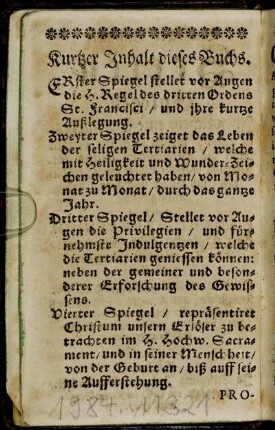 Kurtzer Inhalt dieses Buchs.
ERster Spiegel stellet vor Augen
die H. Regel des dritten Ordens
St. Francisci / und jhre kurtze
Außlegung.
Zweyter Spiegel zeiget das Leben
der seligen Tertiarien / welche
mit Heiligkeit und Wunder-Zei-
chen geleuchtet haben / von Mo-
nat zu Monat / durch das gantze
Jahr.
Dritter Spiegel / Stellet vor Au-
gen die Privilegien / und für-
nehmste Indulgentzen / welche
die Tertiarien geniessen können:
neben der gemeiner und beson-
derer Erforschung des Gewis-
sens.
Vierter Spiegel / repräsentiret
Christum unsern Erlöser zu be-
trachten im H. Hochw. Sacra-
ment / und in seiner Menschheit /
von der Geburt an / biß auff sei-
ne Aufferstehung.
PRO-
1984. 11321